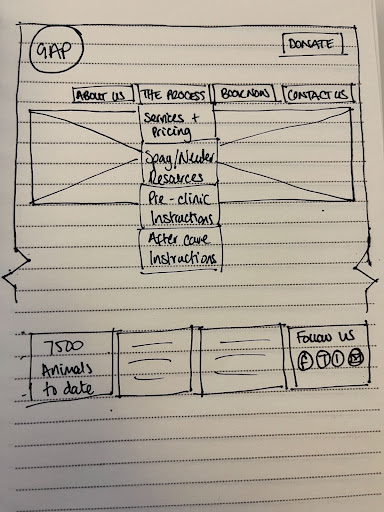 GAP
DONATE
ABOUT US
THE PROCESS
BOOK NOW
CONTACT US
Services +
Pricing
Spay/Neuter
Resources
Pre-clinic
Instructions
After care
Instructions
7500
Animals
to date
Follow Us
F T I